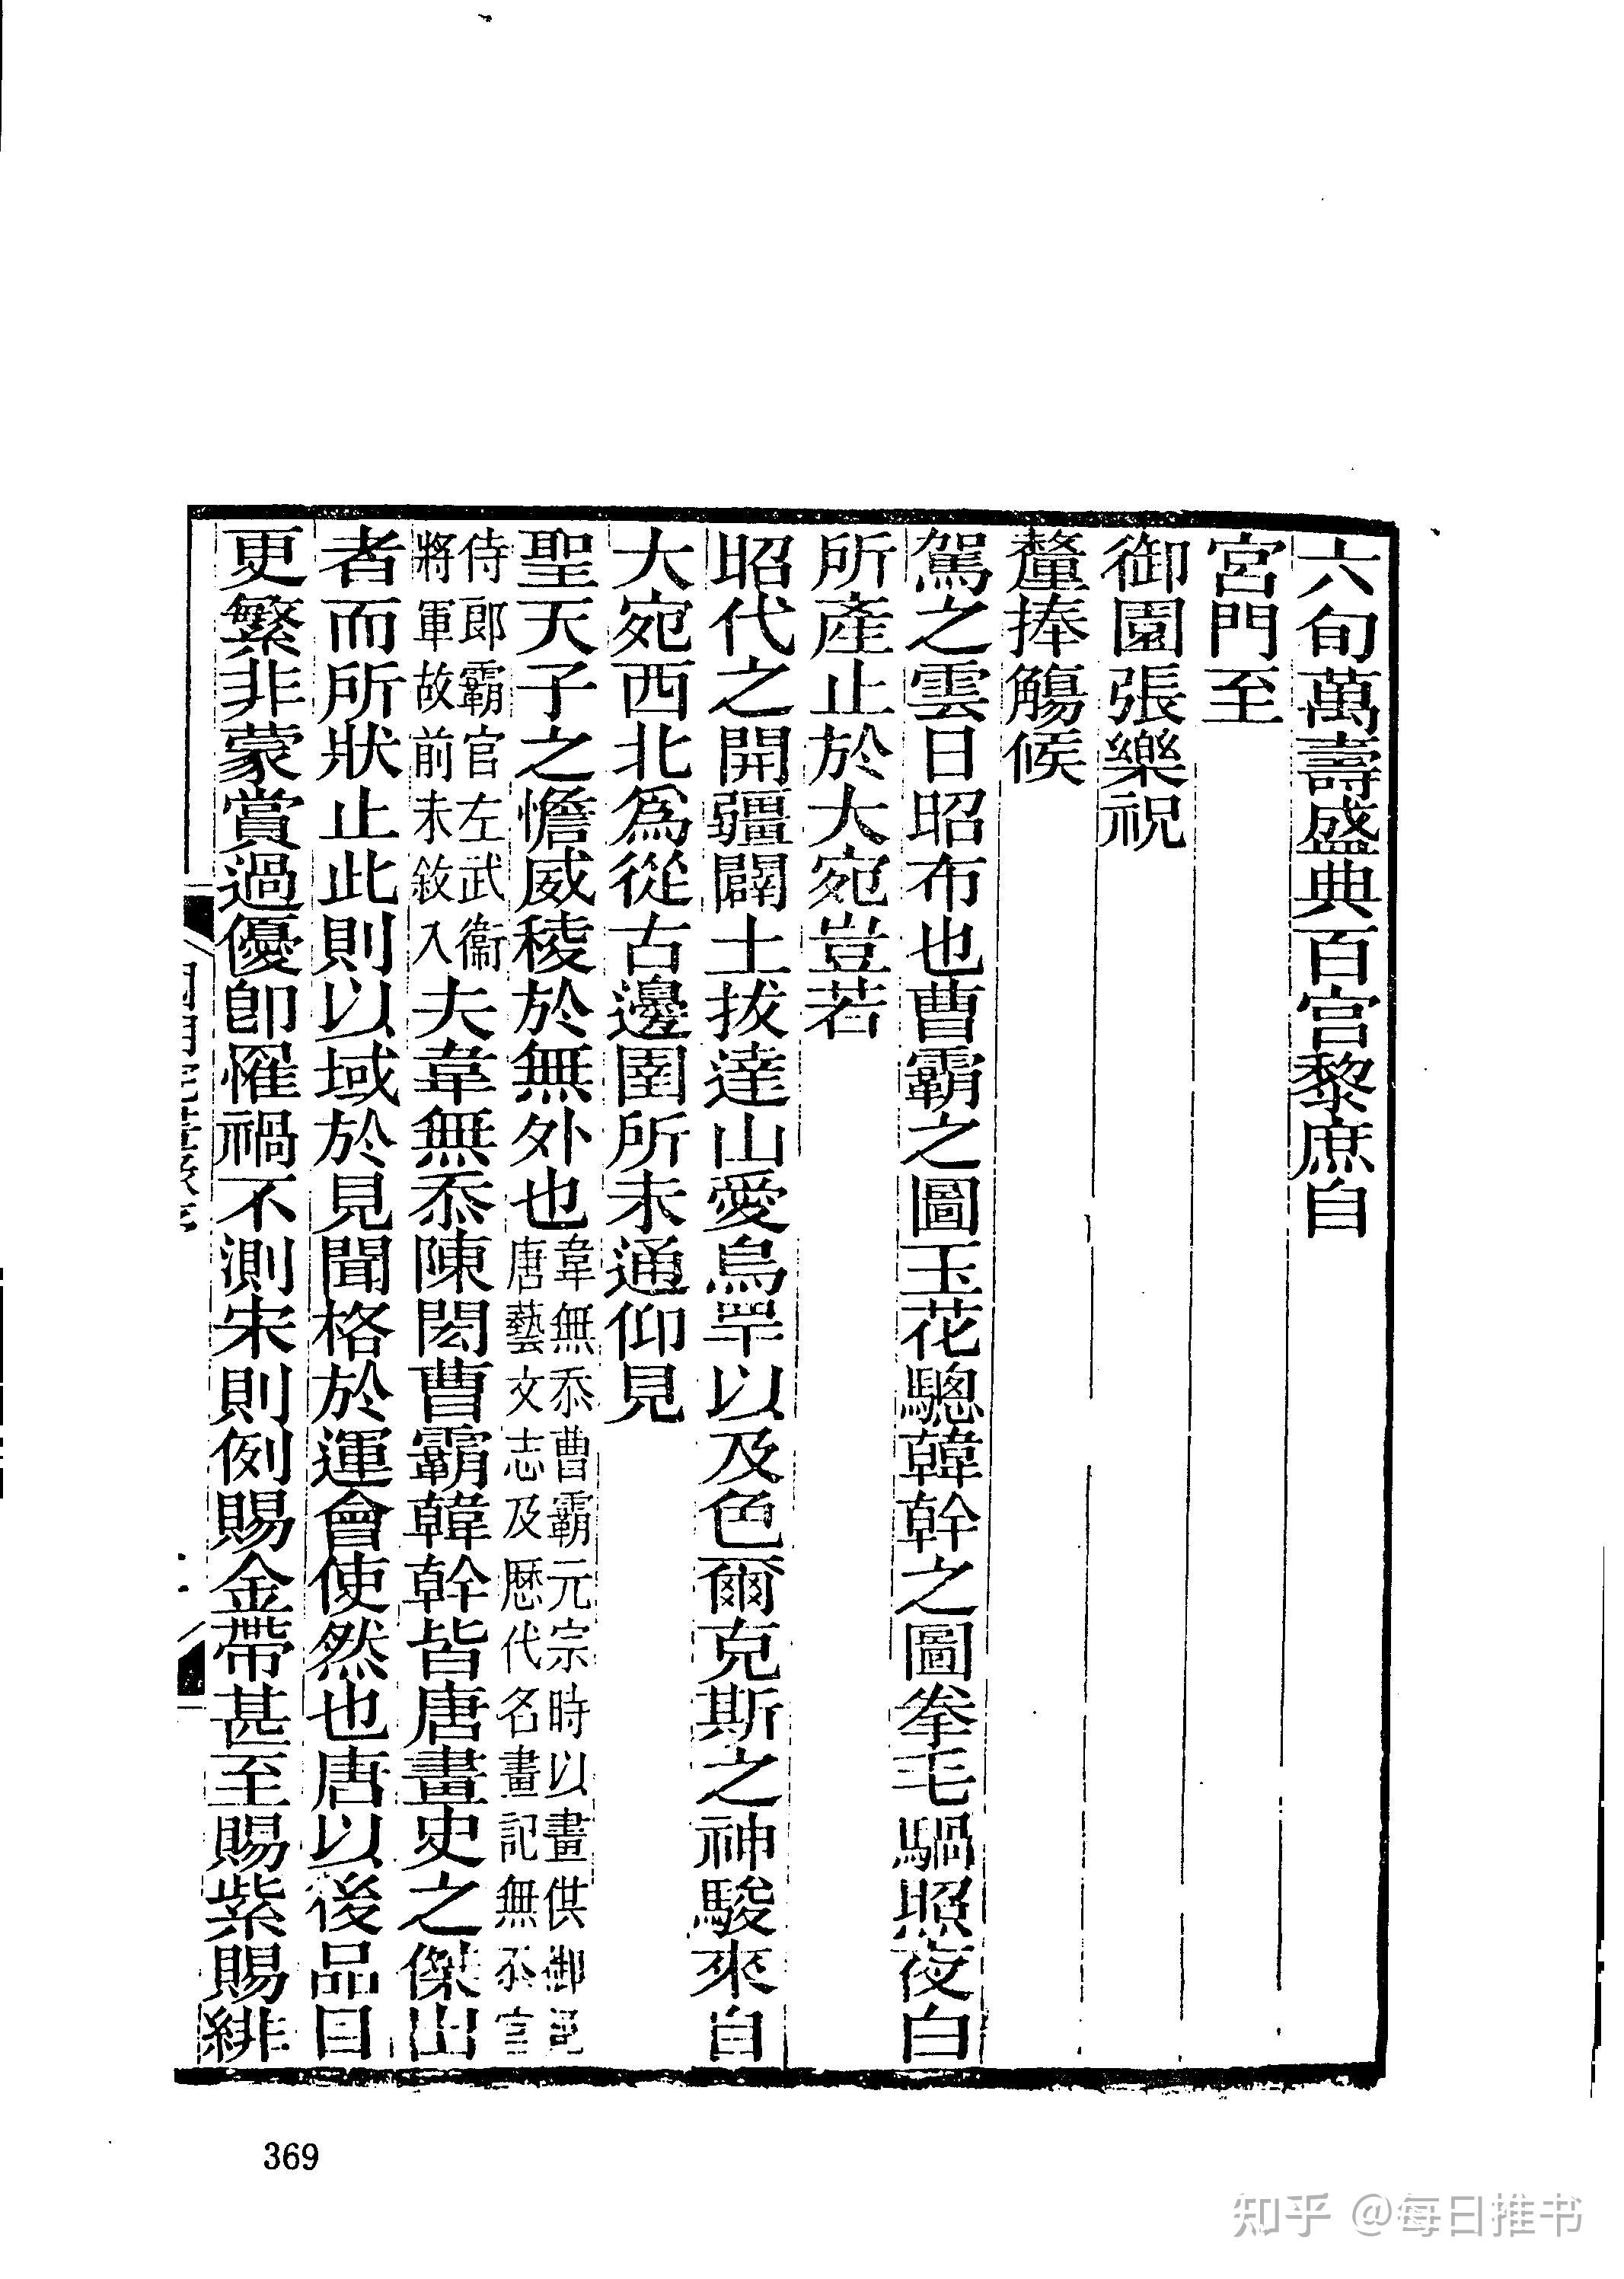 六旬萬壽盛典百官黎庶自
宮門至
御園張樂祝
釐捧觴候
駕之雲日昭布也曹霸之圖玉花驄韓幹之圖拳毛騧照夜白
所產止於大宛豈若
昭代之開疆闢土拔達山愛烏罕以及色爾克斯之神駿來自
大宛西北為從古邊圉所未通仰見
聖天子之憺威稜於無外也韋無忝曹霸元宗時以畫供御
唐藝文志及歷代名畫記無忝官
侍郎霸官左武衞
將軍故前未敘入夫韋無忝陳閎曹霸韓幹皆唐畫史之傑出
者而所狀止此則以域於見聞格於運會使然也唐以後品目
更繁非蒙賞過優卽罹禍不測宋則例賜金帶甚至賜紫賜緋
369
知乎 @每日推书